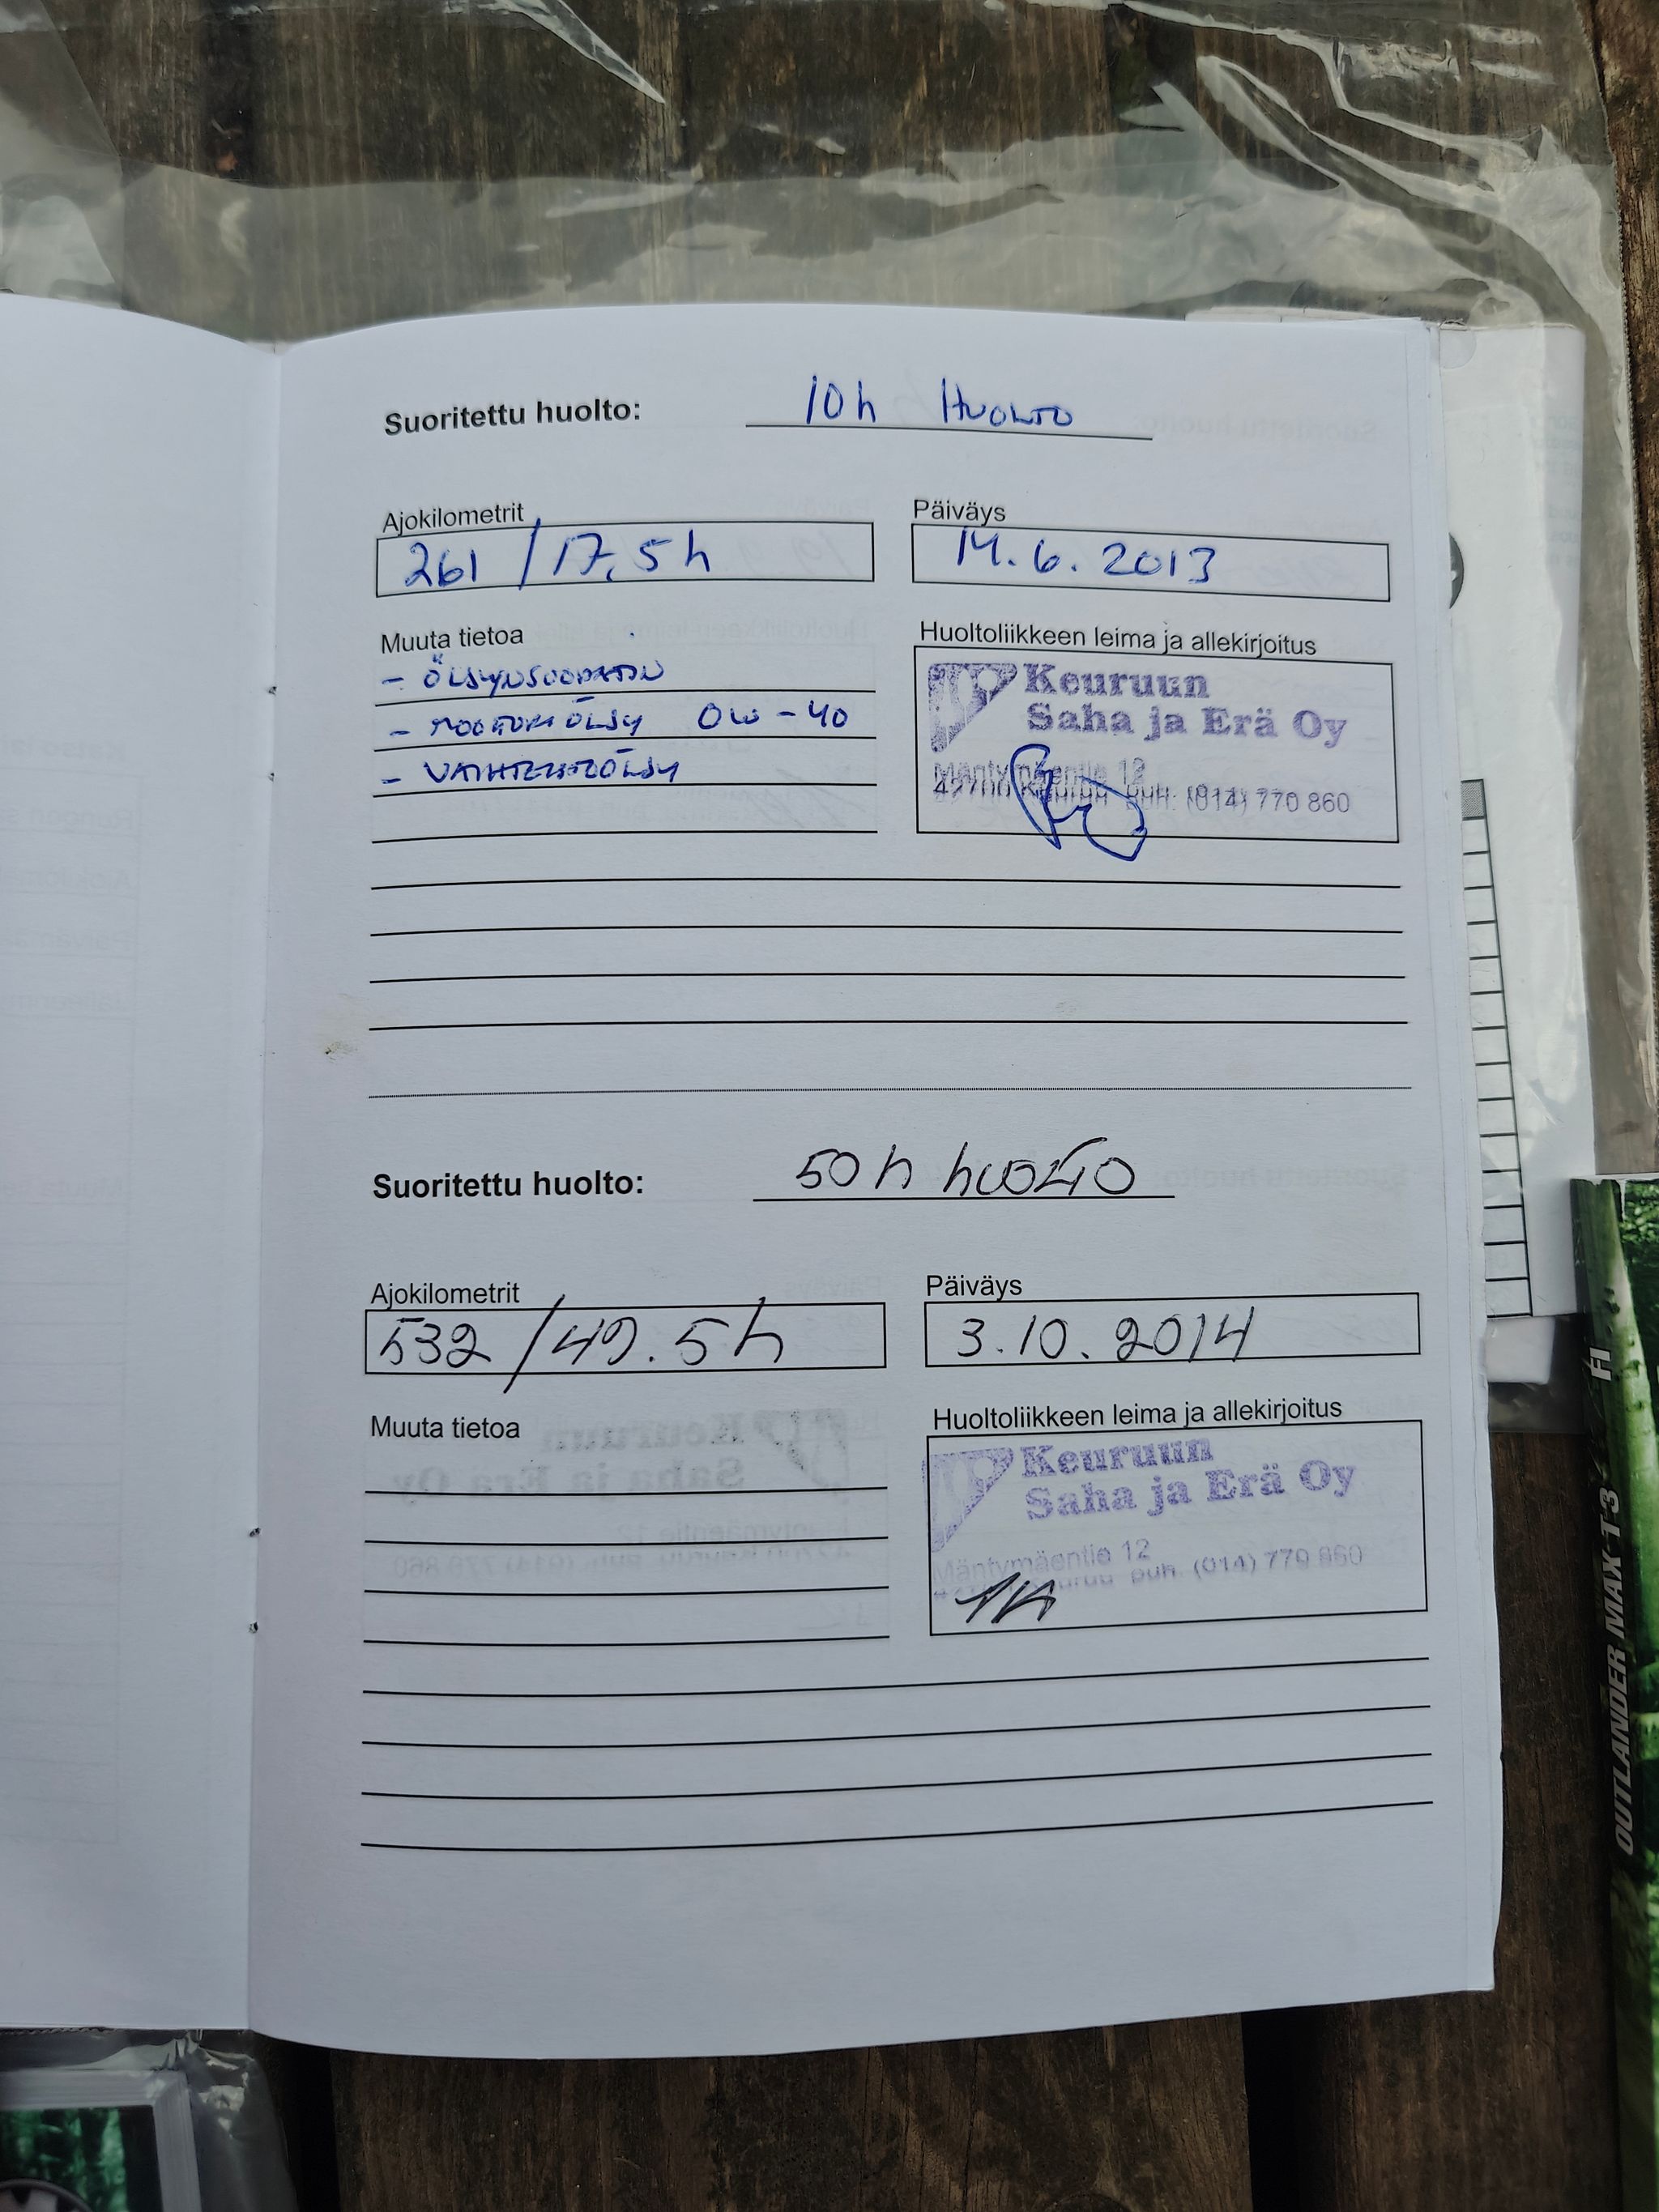 Suoritettu huolto: 10h HUOLTO
Ajokilometrit
261 / 17,5h
Päiväys
14.6.2013
Muuta tietoa
- ÖLJYNSUODATIN
- MOOTTORIÖLJY 0W-40
- VAIHTEISTOÖLJY
Huoltoliikkeen leima ja allekirjoitus
Keuruun
Saha ja Erä Oy
Mäntymäentie 12
42700 Keuruu puh. (014) 770 860
Suoritettu huolto: 50h huolto
Ajokilometrit
532 / 49.5h
Päiväys
3.10.2014
Muuta tietoa
Huoltoliikkeen leima ja allekirjoitus
Keuruun
Saha ja Erä Oy
Mäntymäentie 12
puh. (014) 770 860
OUTLANDER MAX T3